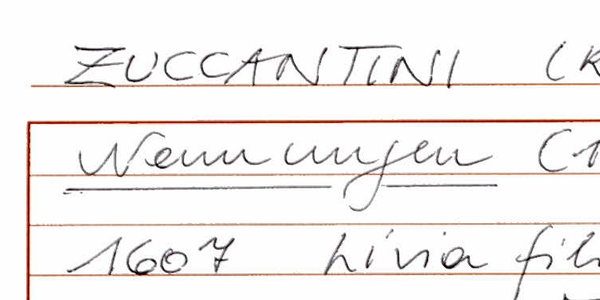 ZUCCANTINI (R
Nennungen (1
1607 Livia fil